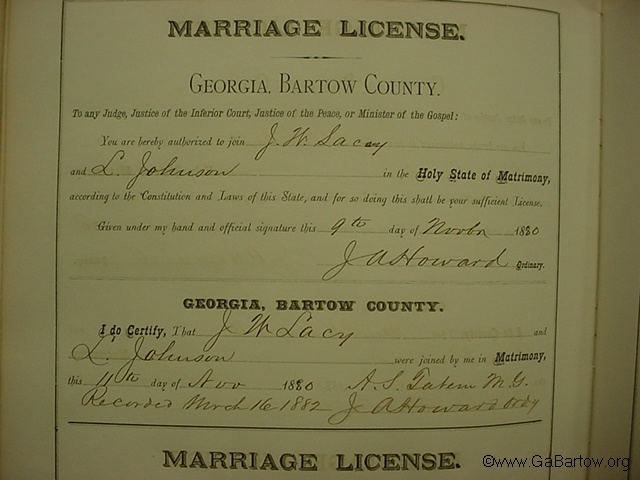 MARRIAGE LICENSE.
GEORGIA, BARTOW COUNTY.
To any Judge, Justice of the Inferior Court, Justice of the Peace, or Minister of the Gospel:
You are hereby authorized to join J. W. Lacey
and L. Johnson in the Holy State of Matrimony,
according to the Constitution and Laws of this State, and for so doing this shall be your sufficient License.
Given under my hand and official signature this 9th day of Novbr 1880
J A Howard Ordinary.
GEORGIA, BARTOW COUNTY.
I do Certify, That J W Lacy and
L. Johnson were joined by me in Matrimony,
this 11th day of Nov 1880 A. S. Tatem M.G.
Recorded Mrch 16 1882 J A Howard Ordy
MARRIAGE LICENSE.
©www.GaBartow.org